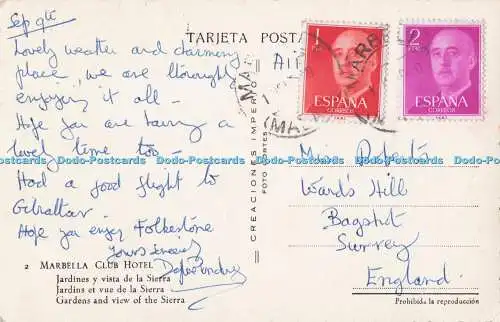 Sep 9th
Lovely weather and charming
place, we are thoroughly
enjoying it all -
Hope you are having a
lovely time too -
Had a good flight to
Gibraltar.
Hope you enjoy Folkestone
Yours sincerely
2 MARBELLA CLUB HOTEL
Jardines y vista de la Sierra
Jardins et vue de la Sierra
Gardens and view of the Sierra
TARJETA POSTA
AIR
CREACIONES IMPERIO
1 PTA
ESPAÑA
CORREOS
2 PTAS
ESPAÑA
CORREOS
Mrs Roberts
Ward's Hill
Bagshot
Surrey
England
Prohibida la reproducción
Dodo-Postcards Dodo-Postcards Dodo-Postcards Dodo-Postcards Dodo-Postcards Dodo-Postcards